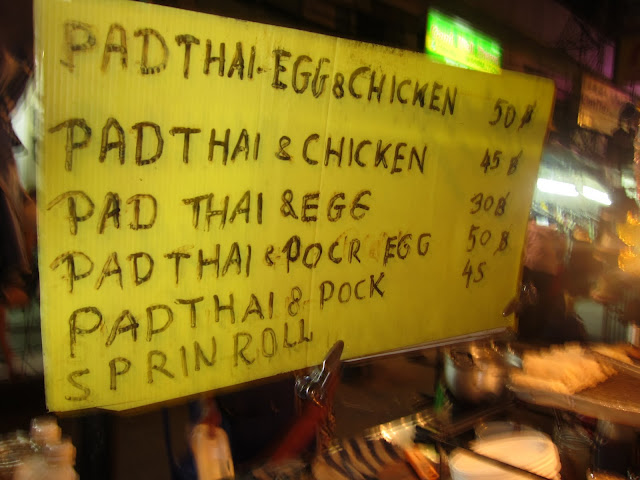 PADTHAI-EGG & CHICKEN 50 ฿
PADTHAI & CHICKEN 45 ฿
PAD THAI & EGG 30 ฿
PADTHAI & POCR EGG 50 ฿
PADTHAI & POCK 45
SPRINROLL